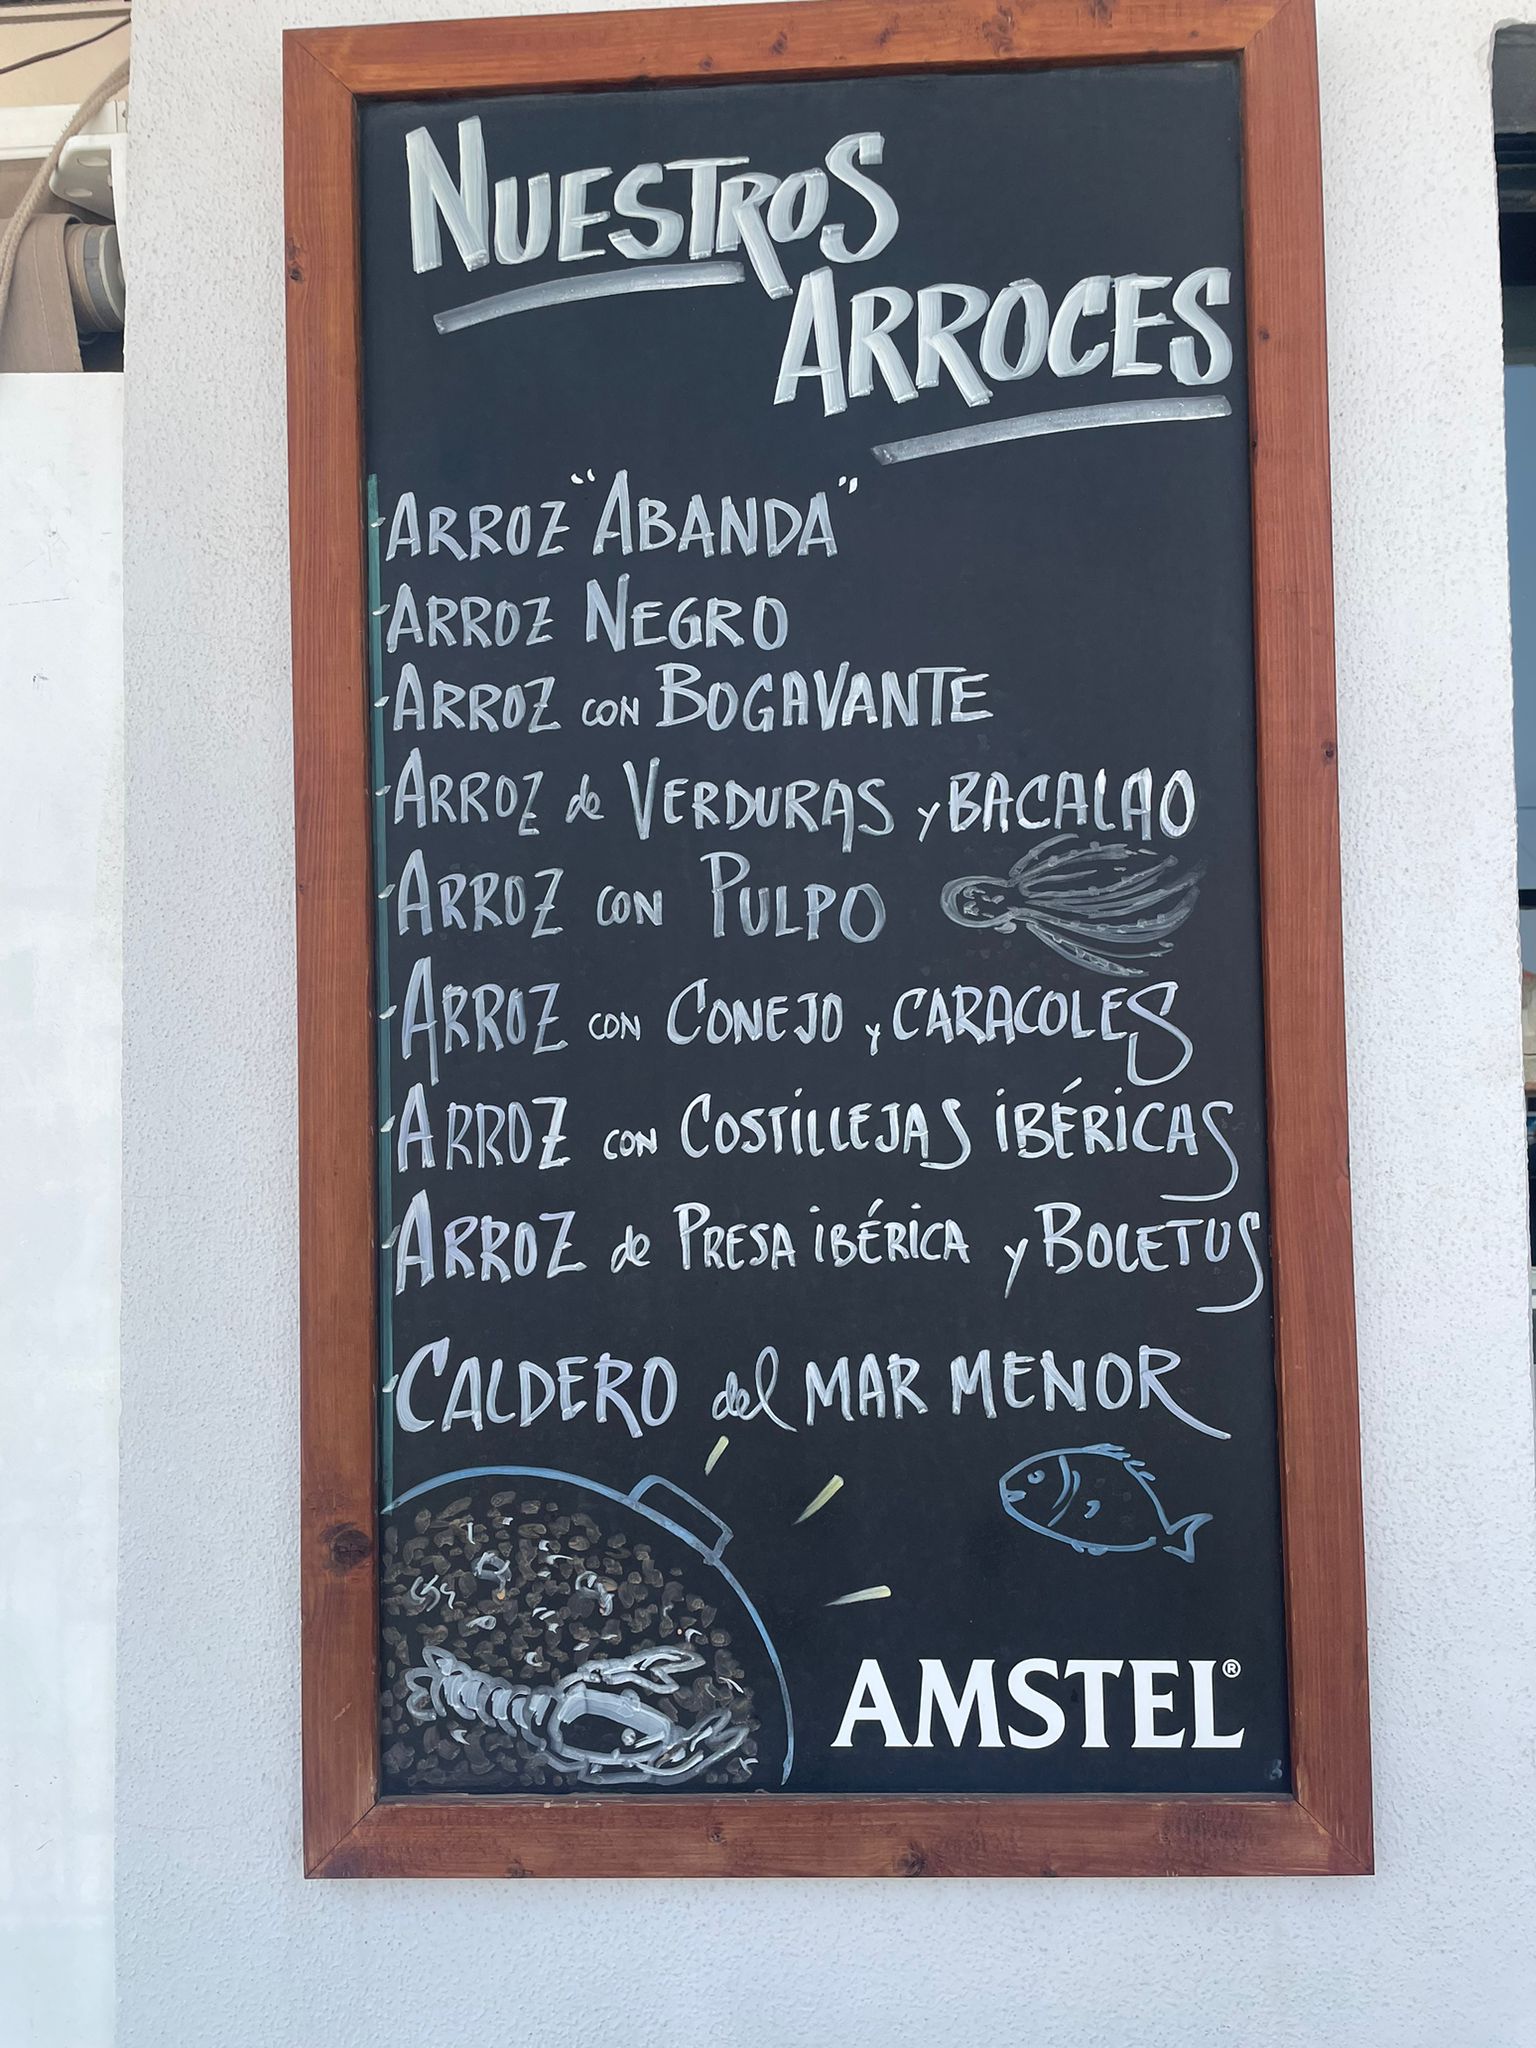 NUESTROS
ARROCES
-ARROZ "ABANDA"
-ARROZ NEGRO
-ARROZ CON BOGAVANTE
-ARROZ de VERDURAS y BACALAO
-ARROZ CON PULPO
-ARROZ CON CONEJO y CARACOLES
-ARROZ CON COSTILLEJAS IBÉRICAS
-ARROZ de PRESA IBÉRICA y BOLETUS
-CALDERO del MAR MENOR
AMSTEL®